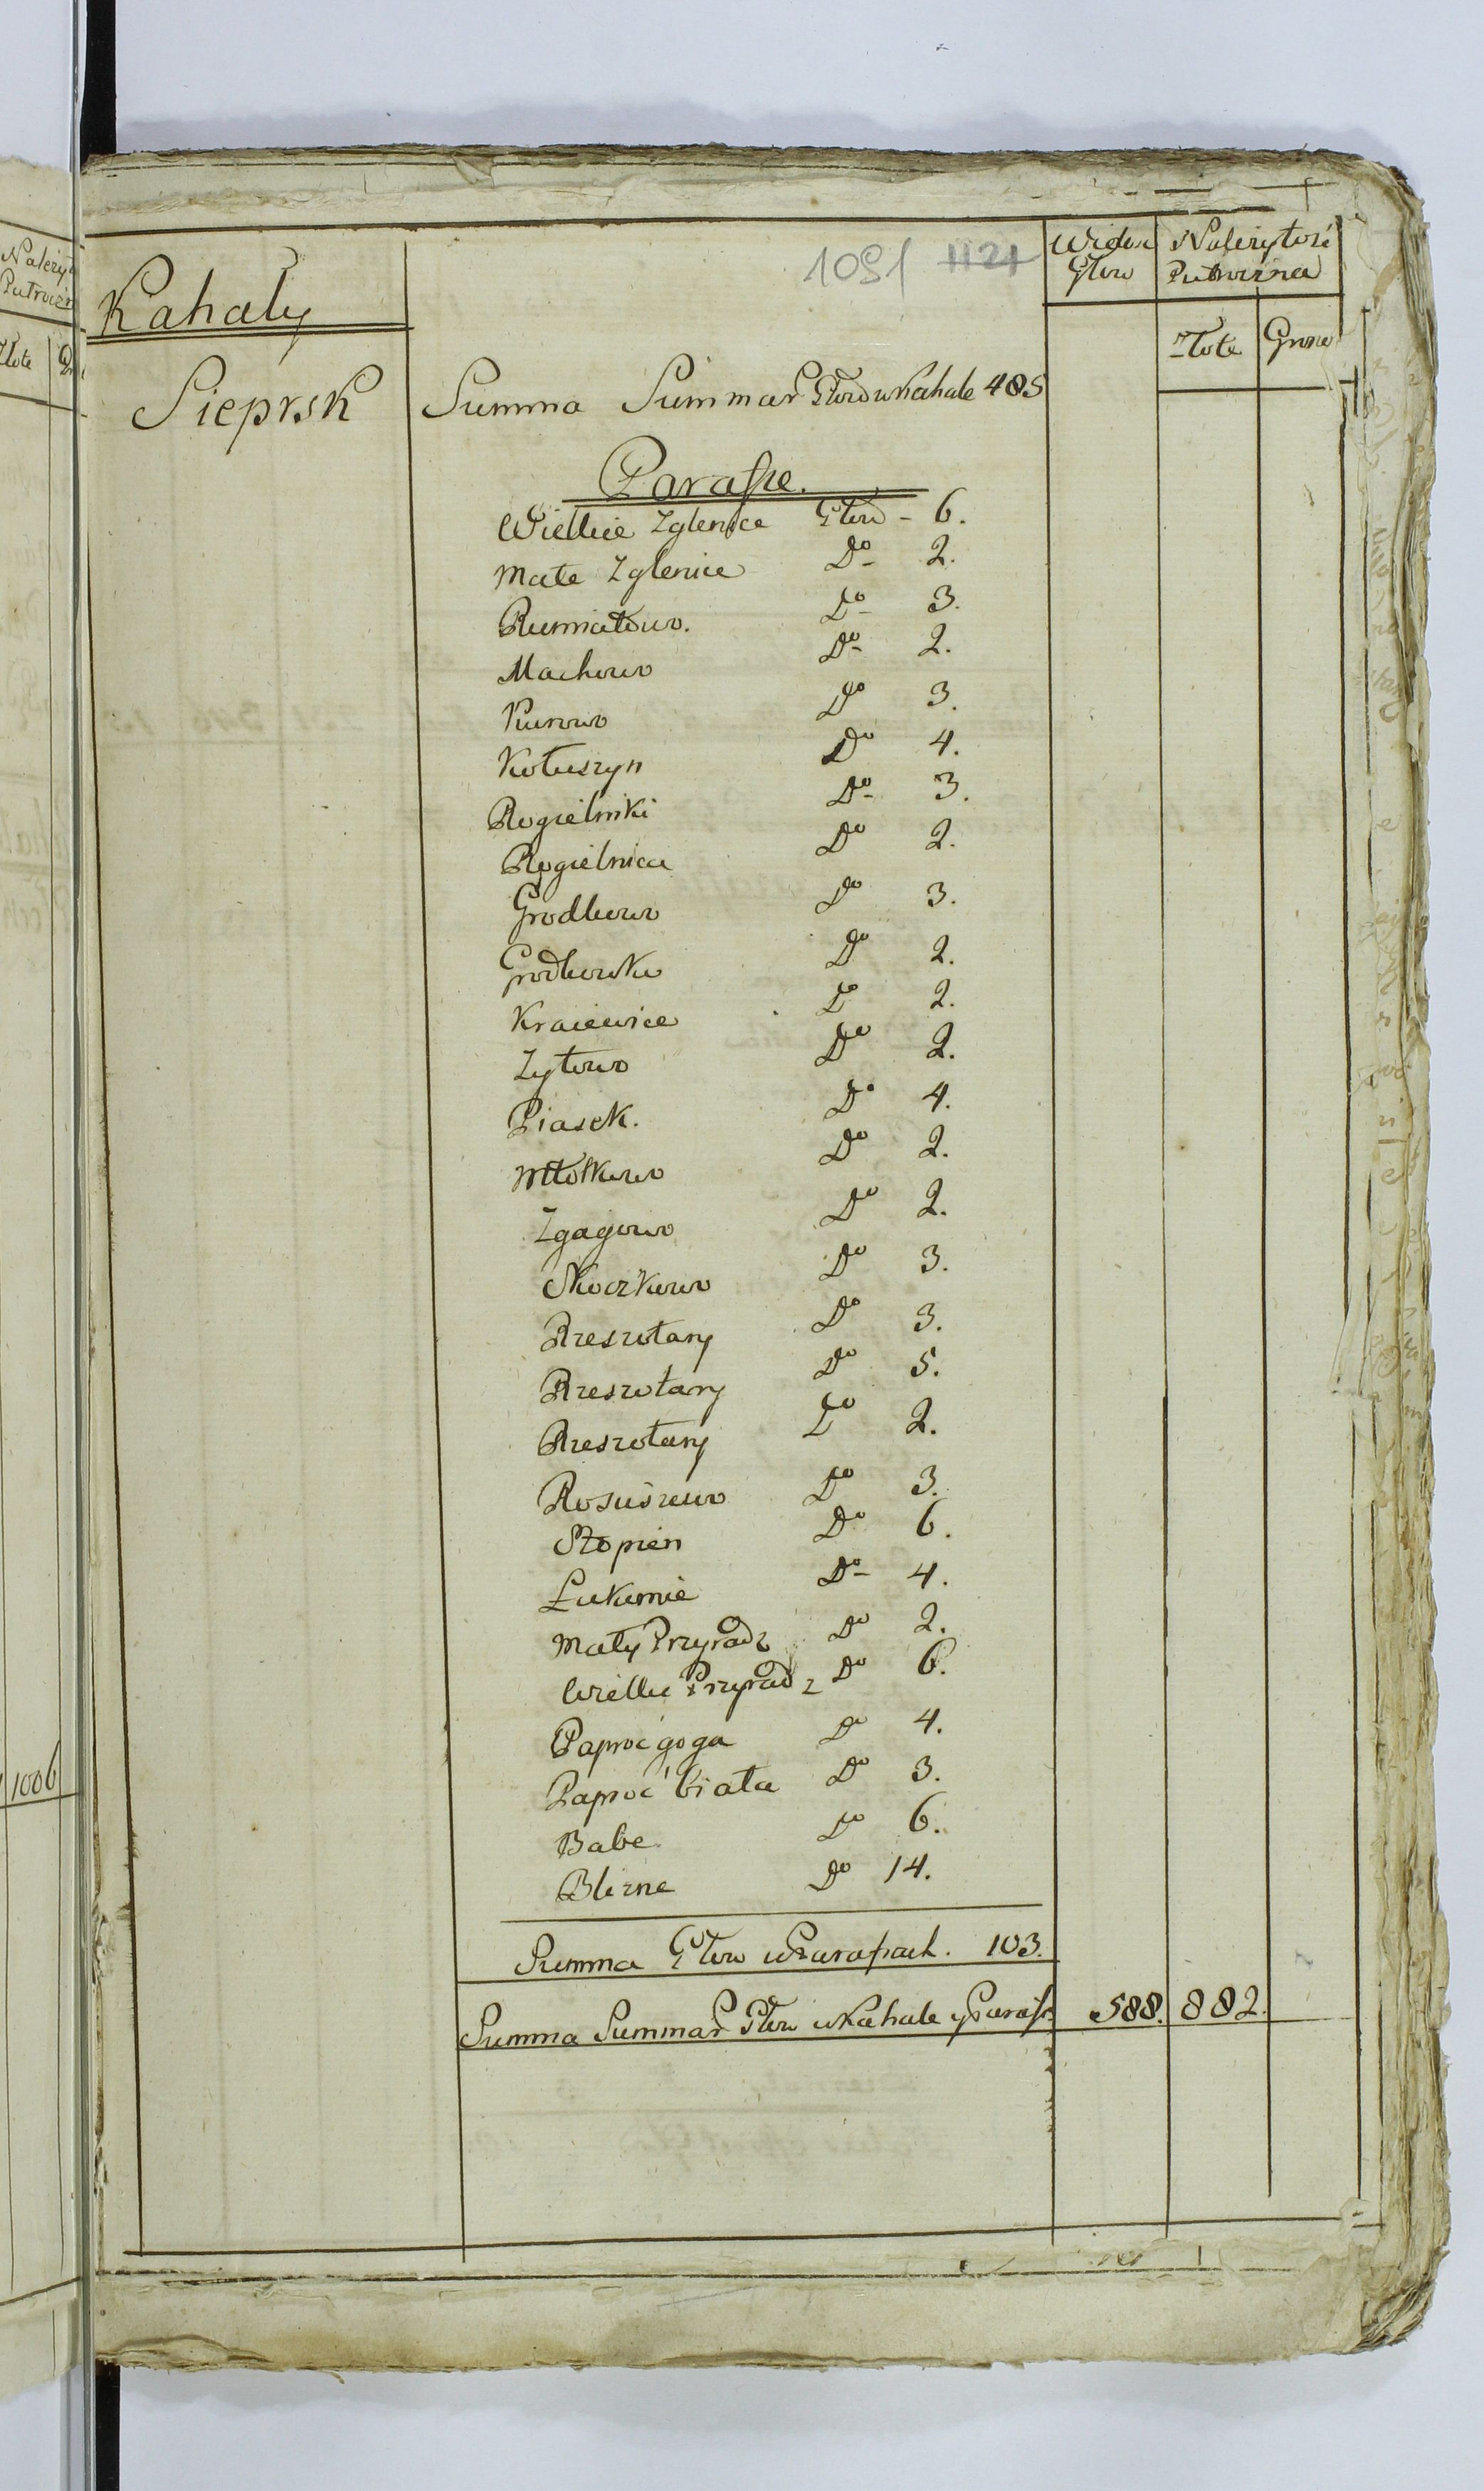 1091 1121
Kahały
Wiele Głow
Należytość Putroczna
Złote
Grosze
Sieprsk
Summa Summar Głow w Kahale 485
Parafie.
Wielkie Zglenice Głow - 6.
Małe Zglenice Do - 2.
Rumiatowo. Do - 3.
Machowo Do - 2.
Kurowo Do 3.
Kotuszyn Do 4.
Rogielniki Do - 3.
Rogielnica Do 2.
Grodkowo Do 3.
Grodkowko Do 2.
Kraiewice Do 2.
Zytowo Do 2.
Piasek. Do 4.
Młotkowo Do 2.
Zgagowo Do 2.
Skoczkowo Do 3.
Rzeszotary Do 3.
Rzeszotary Do 5.
Rzeszotary Do 2.
Rosciszewo Do 3.
Stopien Do 6.
Łukomie Do - 4.
Mały Przyradz Do 2.
Wielki Przyradz Do 6.
Paproc goga Do 4.
Paproć biała Do 3.
Babe Do 6.
Blizne Do 14.
Summa Głow w Parafiach. 103.
Summa Summar Głow w Kahale y Paraf. 588. 882.
Należyt
Putroczn
Złote
1006